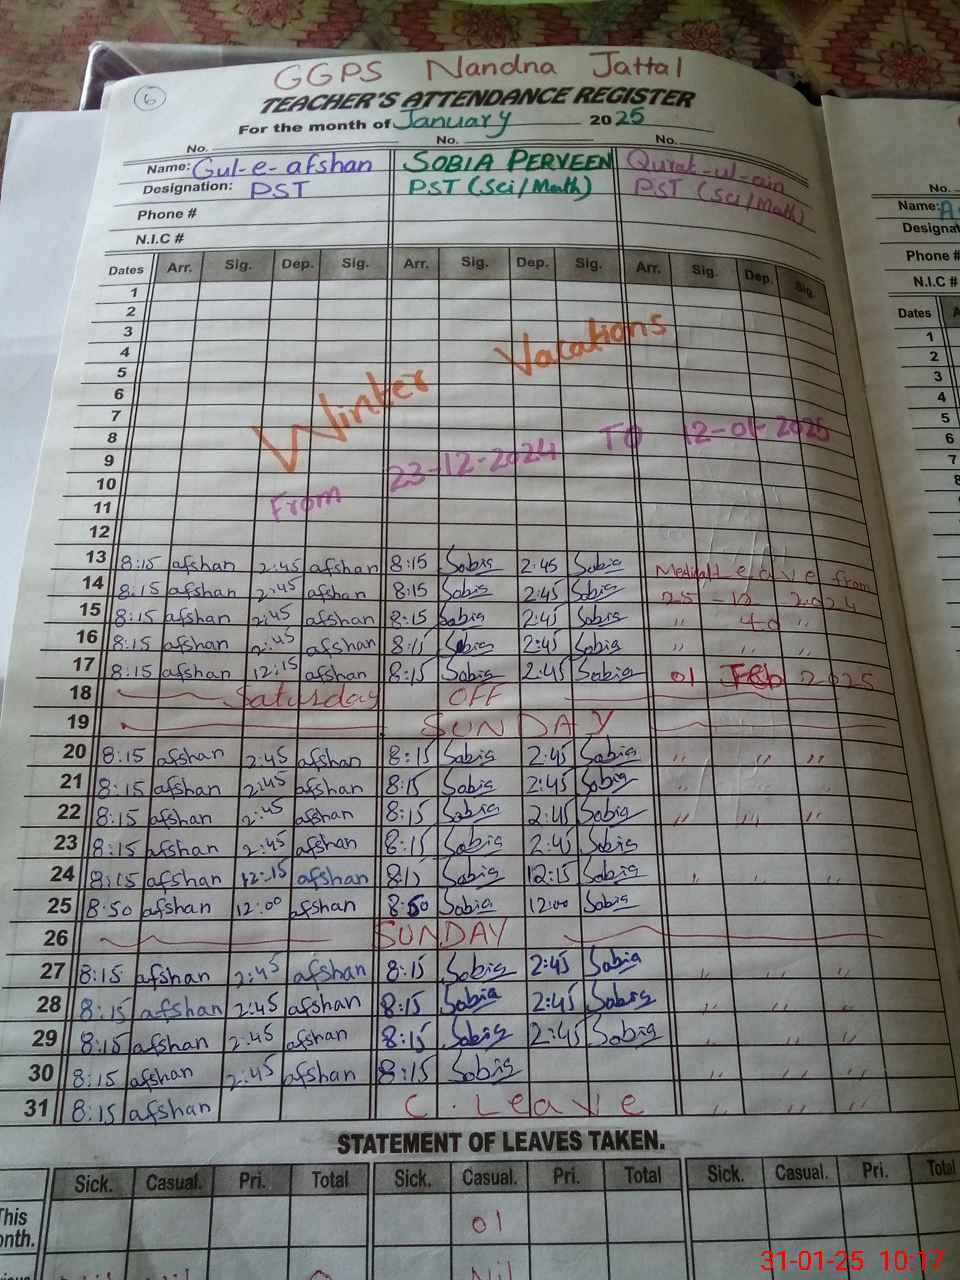 GGPS Nandna Jattal
6
TEACHER'S ATTENDANCE REGISTER
For the month of January 2025
No. No. No.
Name: Gul-e-afshan SOBIA PERVEEN Qurat-ul-ain
Designation: PST PST (Sci/Math) PST (Sci/Math)
Phone #
N.I.C #
Dates Arr. Sig. Dep. Sig. Arr. Sig. Dep. Sig. Arr. Sig. Dep. Sig.
1
2
3
4
5
6
7
8
9
10
11
12
Winter Vacations
From 23-12-2024 TO 12-01-2025
13 8:15 afshan 2:45 afshan 8:15 Sobia 2:45 Sobia Medical Leave from
14 8:15 afshan 2:45 afshan 8:15 Sobia 2:45 Sobia 25-12 2024
15 8:15 afshan 2:45 afshan 8:15 Sobia 2:45 Sobia " to "
16 8:15 afshan 2:45 afshan 8:15 Sobia 2:45 Sobia " " "
17 8:15 afshan 12:15 afshan 8:15 Sobia 2:45 Sobia 01 Feb 2025
18 Saturday OFF
19 SUNDAY
20 8:15 afshan 2:45 afshan 8:15 Sobia 2:45 Sobia " " "
21 8:15 afshan 2:45 afshan 8:15 Sobia 2:45 Sobia
22 8:15 afshan 2:45 afshan 8:15 Sobia 2:45 Sobia " " "
23 8:15 afshan 2:45 afshan 8:15 Sobia 2:45 Sobia
24 8:15 afshan 12:15 afshan 8:15 Sobia 12:15 Sobia
25 8:50 afshan 12:00 afshan 8:50 Sobia 12:00 Sobia
26 SUNDAY
27 8:15 afshan 2:45 afshan 8:15 Sobia 2:45 Sobia " " "
28 8:15 afshan 2:45 afshan 8:15 Sobia 2:45 Sobia " " "
29 8:15 afshan 2:45 afshan 8:15 Sobia 2:45 Sobia " " "
30 8:15 afshan 2:45 afshan 8:15 Sobia " " "
31 8:15 afshan C. Leave " " "
STATEMENT OF LEAVES TAKEN.
Sick. Casual. Pri. Total Sick. Casual. Pri. Total Sick. Casual. Pri. Total
This
onth. 01
Nil
No.
Name:
Designat
Phone #
N.I.C #
Dates
1
2
3
4
5
6
7
8
9
10
11
12
31-01-25 10:17